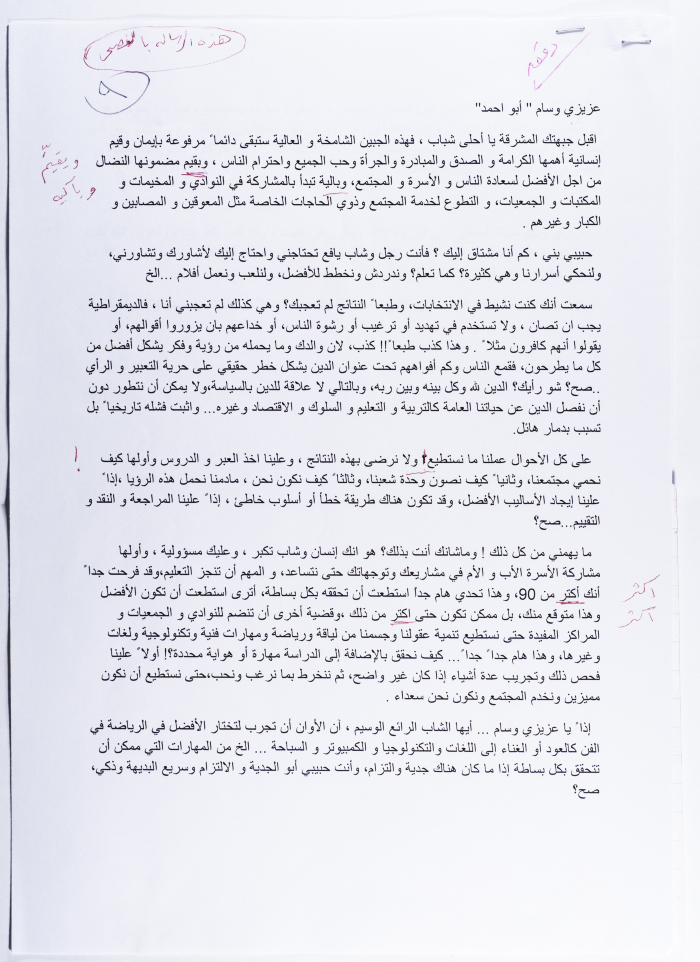 هذه الرسالة بالفصحى
دققه
٩
عزيزي وسام " أبو احمد"
اقبل جبهتك المشرقة يا أحلى شباب ، فهذه الجبين الشامخة و العالية ستبقى دائما ً مرفوعة بإيمان وقيم
إنسانية أهمها الكرامة و الصدق والمبادرة والجرأة وحب الجميع واحترام الناس ، وبقيم مضمونها النضال
ويقيم
من اجل الأفضل لسعادة الناس و الأسرة و المجتمع، وبالية تبدأ بالمشاركة في النوادي و المخيمات و
المكتبات و الجمعيات، و التطوع لخدمة المجتمع وذوي الحاجات الخاصة مثل المعوقين و المصابين و
الكبار وغيرهم .
حبيبي بني ، كم أنا مشتاق إليك ؟ فأنت رجل وشاب يافع تحتاجني واحتاج إليك لأشاورك وتشاورني،
ولنحكي أسرارنا وهي كثيرة؟ كما تعلم? وندردش ونخطط للأفضل، ولنلعب ونعمل أفلام ...الخ
سمعت أنك كنت نشيط في الانتخابات، وطبعا ً النتائج لم تعجبك؟ وهي كذلك لم تعجبني أنا ، فالديمقراطية
يجب ان تصان ، ولا تستخدم في تهديد أو ترغيب أو رشوة الناس، أو خداعهم بان يزوروا أقوالهم، أو
يقولوا أنهم كافرون مثلا ً . وهذا كذب طبعا ً!! كذب، لان والدك وما يحمله من رؤية وفكر يشكل أفضل من
كل ما يطرحون، فقمع الناس وكم أفواههم تحت عنوان الدين يشكل خطر حقيقي على حرية التعبير و الرأي
..صح؟ شو رأيك؟ الدين لله وكل بينه وبين ربه، وبالتالي لا علاقة للدين بالسياسة،ولا يمكن أن نتطور دون
أن نفصل الدين عن حياتنا العامة كالتربية و التعليم و السلوك و الاقتصاد وغيره... واثبت فشله تاريخيا ً بل
تسبب بدمار هائل.
على كل الأحوال عملنا ما نستطيع ولا نرضى بهذه النتائج ، وعلينا اخذ العبر و الدروس وأولها كيف
!
نحمي مجتمعنا، وثانيا ً كيف نصون وحدة شعبنا، وثالثا ً كيف نكون نحن ، مادمنا نحمل هذه الرؤيا ،إذا ً
علينا إيجاد الأساليب الأفضل، وقد تكون هناك طريقة خطأ أو أسلوب خاطئ ، إذا ً علينا المراجعة و النقد و
التقييم...صح؟
ما يهمني من كل ذلك ! وماشانك أنت بذلك؟ هو انك إنسان وشاب تكبر ، وعليك مسؤولية ، وأولها
مشاركة الأسرة الأب و الأم في مشاريعك وتوجهاتك حتى نتساعد، و المهم أن تنجز التعليم،وقد فرحت جدا ً
أنك أكثر من 90، وهذا تحدي هام جداً استطعت أن تحققه بكل بساطة، أترى استطعت أن تكون الأفضل
اكثر
وهذا متوقع منك، بل ممكن تكون حتى اكثر من ذلك ،وقضية أخرى أن تنضم للنوادي و الجمعيات و
اكثر
المراكز المفيدة حتى نستطيع تنمية عقولنا وجسمنا من لياقة ورياضة ومهارات فنية وتكنولوجية ولغات
وغيرها، وهذا هام جدا ً جدا ً... كيف نحقق بالإضافة إلى الدراسة مهارة أو هواية محددة؟! أولا ً علينا
فحص ذلك وتجريب عدة أشياء إذا كان غير واضح، ثم ننخرط بما نرغب ونحب،حتى نستطيع أن نكون
مميزين ونخدم المجتمع ونكون نحن سعداء .
إذا ً يا عزيزي وسام ... أيها الشاب الرائع الوسيم ، آن الأوان أن تجرب لتختار الأفضل في الرياضة في
الفن كالعود أو الغناء إلى اللغات والتكنولوجيا و الكمبيوتر و السباحة ... الخ من المهارات التي ممكن أن
تتحقق بكل بساطة إذا ما كان هناك جدية و التزام، وأنت حبيبي أبو الجدية و الالتزام وسريع البديهة وذكي،
صح؟